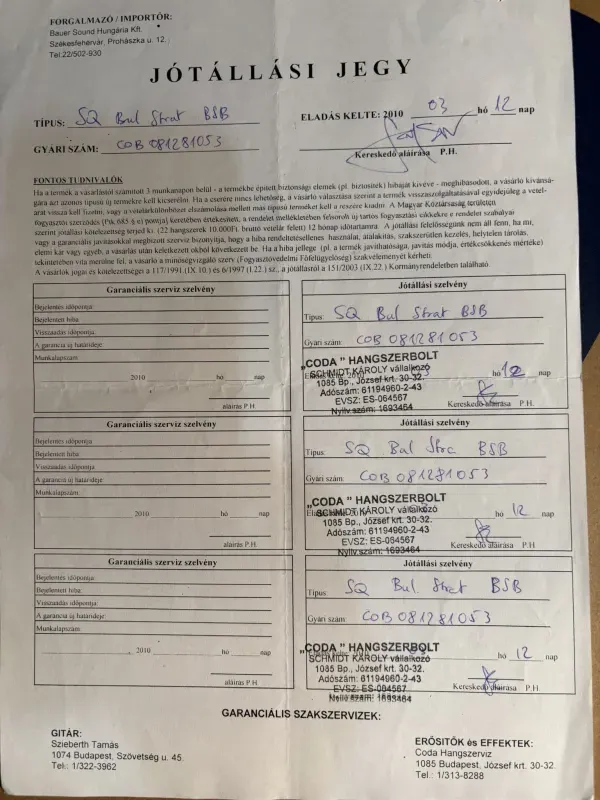 FORGALMAZÓ / IMPORTŐR:
Bauer Sound Hungária Kft.
Székesfehérvár, Prohászka u. 12.
Tel.22/502-930
JÓTÁLLÁSI JEGY
TÍPUS: SQ Bul Strat BSB
ELADÁS KELTE: 2010 03 hó 12 nap
GYÁRI SZÁM: COB 081281053
Kereskedő aláírása P.H.
FONTOS TUDNIVALÓK
Ha a termék a vásárlástól számított 3 munkanapon belül - a termékbe épített biztonsági elemek (pl. biztosíték) hibáját kivéve - meghibásodott, a vásárló kívánsá-
gára azt azonos típusú új termékre kell kicserélni. Ha a cserére nincs lehetőség, a vásárló választása szerint a termék visszaszolgáltatásával egyidejűleg a vétel-
árat vissza kell fizetni, vagy a vételárkülönbözet elszámolása mellett más típusú terméket kell a részére kiadni. A Magyar Köztársaság területén
fogyasztói szerződés (Ptk. 685.§ e) pontja) keretében értékesített, a rendelet mellékletében felsorolt új tartós fogyasztási cikkekre e rendelet szabályai
szerint jótállási kötelezettség terjed ki. (22 hangszerek 10.000Ft. bruttó vételár felett) 12 hónap időtartamra. A jótállási felelősségünk nem áll fenn, ha mi,
vagy a garanciális javításokkal megbízott szerviz bizonyítja, hogy a hiba rendeltetésellenes használat, átalakítás, szakszerűtlen kezelés, helytelen tárolás,
elemi kár vagy egyéb, a vásárlás után keletkezett okból következett be. Ha a hiba jellege (pl. a termék javíthatósága, javítás módja, értékcsökkenés mértéke)
tekintetében vita merülne fel, a vásárló a minőségvizsgáló szerv (Fogyasztóvédelmi Főfelügyelőség) szakvéleményét kérheti.
A vásárlók jogait és kötelezettségeit a 117/1991.(IX.10.) és 6/1997.(I.22.) sz., a jótállástól a 151/2003 (IX.22.) Kormányrendeletben található.
Garanciális szerviz szelvény
Bejelentés időpontja:
Bejelentett hiba:
Visszaadás időpontja:
A garancia új határideje:
Munkalapszám:
2010 hó nap
aláírás P.H.
Jótállási szelvény
Típus: SQ Bul Strat BSB
Gyári szám: COB 081281053
„CODA” HANGSZERBOLT
SCHMIDT KÁROLY vállalkozó
hó 12
1085 Bp., József krt. 30-32.
Adószám: 61194960-2-43
EVSZ: ES-064567
Nyilv.szám: 1693464
Kereskedő aláírása P.H.
Garanciális szerviz szelvény
Bejelentés időpontja:
Bejelentett hiba:
Visszaadás időpontja:
A garancia új határideje
Munkalapszám:
2010 hó nap
aláírás P.H.
Jótállási szelvény
Típus: SQ Bul Stra BSB
Gyári szám: COB 081281053
„CODA” HANGSZERBOLT
SCHMIDT KÁROLY vállalkozó
hó 12 nap
1085 Bp., József krt. 30-32.
Adószám: 61194960-2-43
EVSZ: ES-064567
Nyilv.szám: 1693464
Kereskedő aláírása P.H.
Garanciális szerviz szelvény
Bejelentés időpontja:
Bejelentett hiba:
Visszaadás időpontja:
A garancia új határideje:
Munkalapszám:
2010 hó nap
aláírás P.H.
Jótállási szelvény
Típus: SQ Bul Strat BSB
Gyári szám: COB 081281053
„CODA” HANGSZERBOLT
SCHMIDT KÁROLY vállalkozó
hó 12 nap
1085 Bp., József krt. 30-32.
Adószám: 61194960-2-43
EVSZ: ES-064567
Nyilv.szám: 1693464
Kereskedő aláírása P.H.
GARANCIÁLIS SZAKSZERVIZEK:
GITÁR:
Szieberth Tamás
1074 Budapest, Szövetség u. 45.
Tel.: 1/322-3962
ERŐSÍTŐK és EFFEKTEK:
Coda Hangszerbolt
1085 Budapest, József krt. 30-32.
Tel.: 1/313-8288